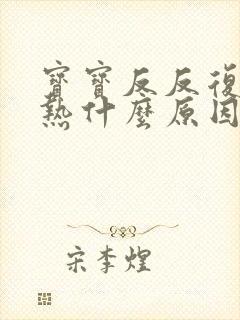 寶寶反反復
熱什麼原因
宋李煌